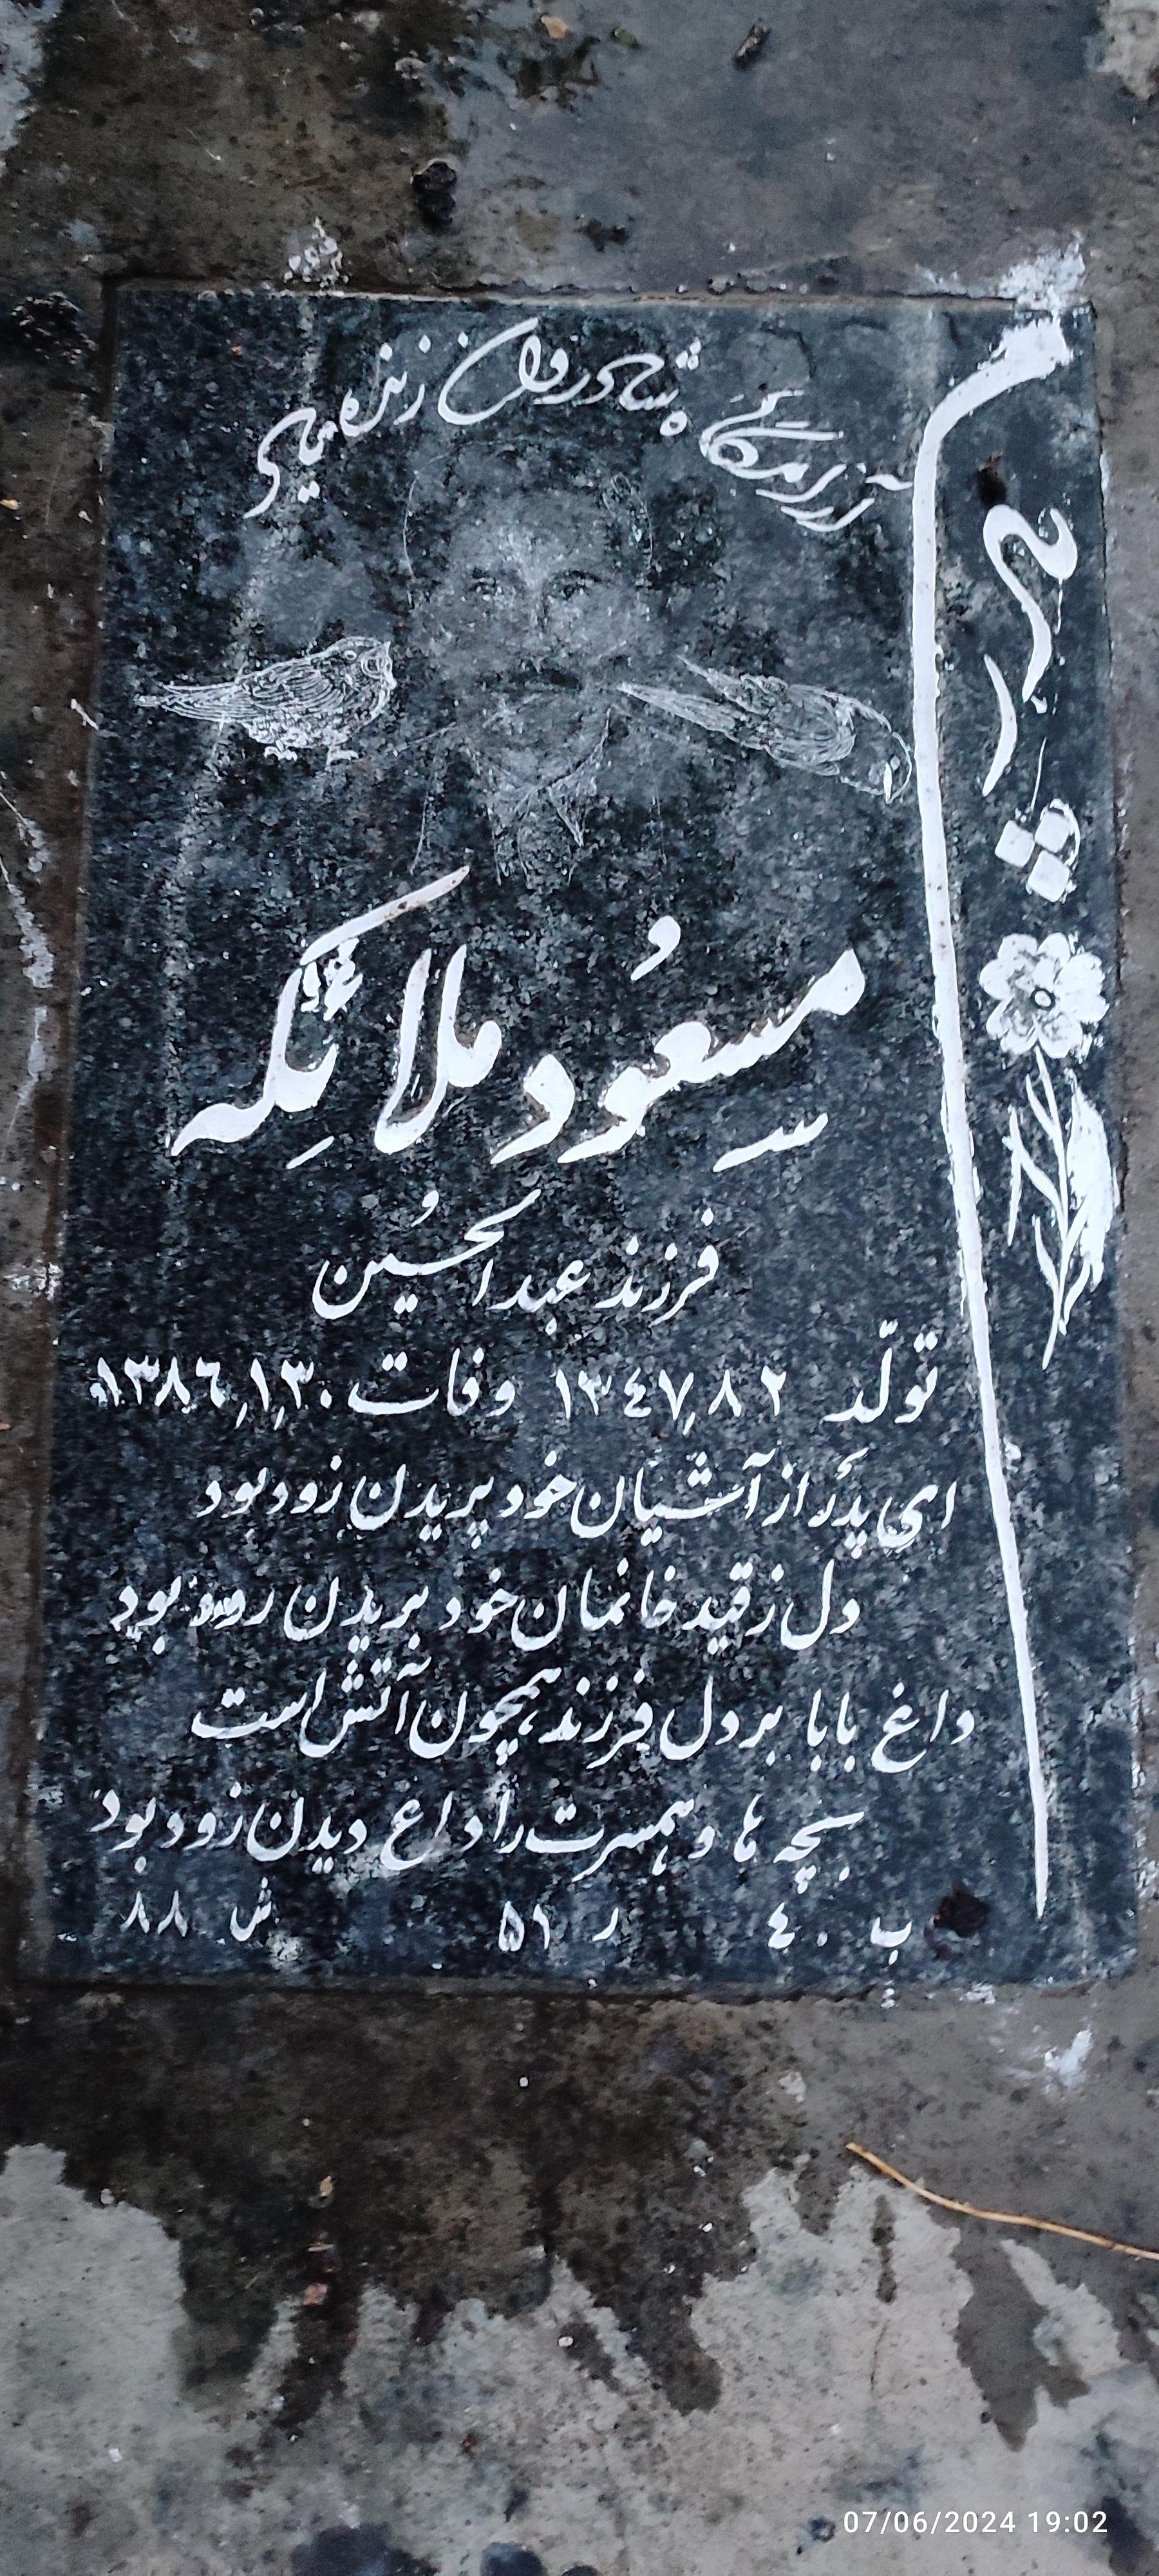 آرامگاه شادروان زنده یاد
پدر
مسعود ملائکه
فرزند عبدالحسین
تولّد ١٣٤٧٫٨٫٢ وفات ١٣٨٦٫١٫٣٠
ای پدر از آشیان خود پریدن زود بود
دل ز قید خانمان خود بریدن زود بود
داغ بابا بر دل فرزند همچون آتش است
بچه ها و همسرت را داغ دیدن زود بود
ب ٤٠ ر ۵١ ش ٨٨
07/06/2024 19:02